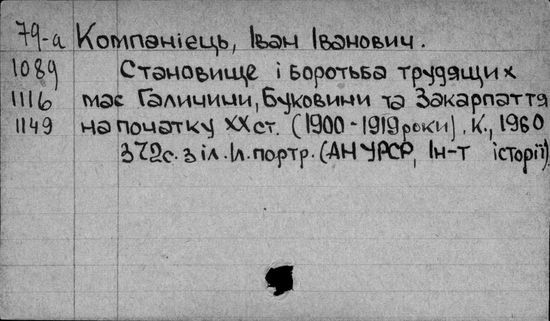 79-а Компанієць, Іван Іванович.
1089 Становище і боротьба трудящих
1116 мас Галичини, Буковини та Закарпаття
1149 на початку XX ст. (1900-1919 роки). К., 1960
372с. з іл. и. портр. (АН УРСР, Ін-т історії)